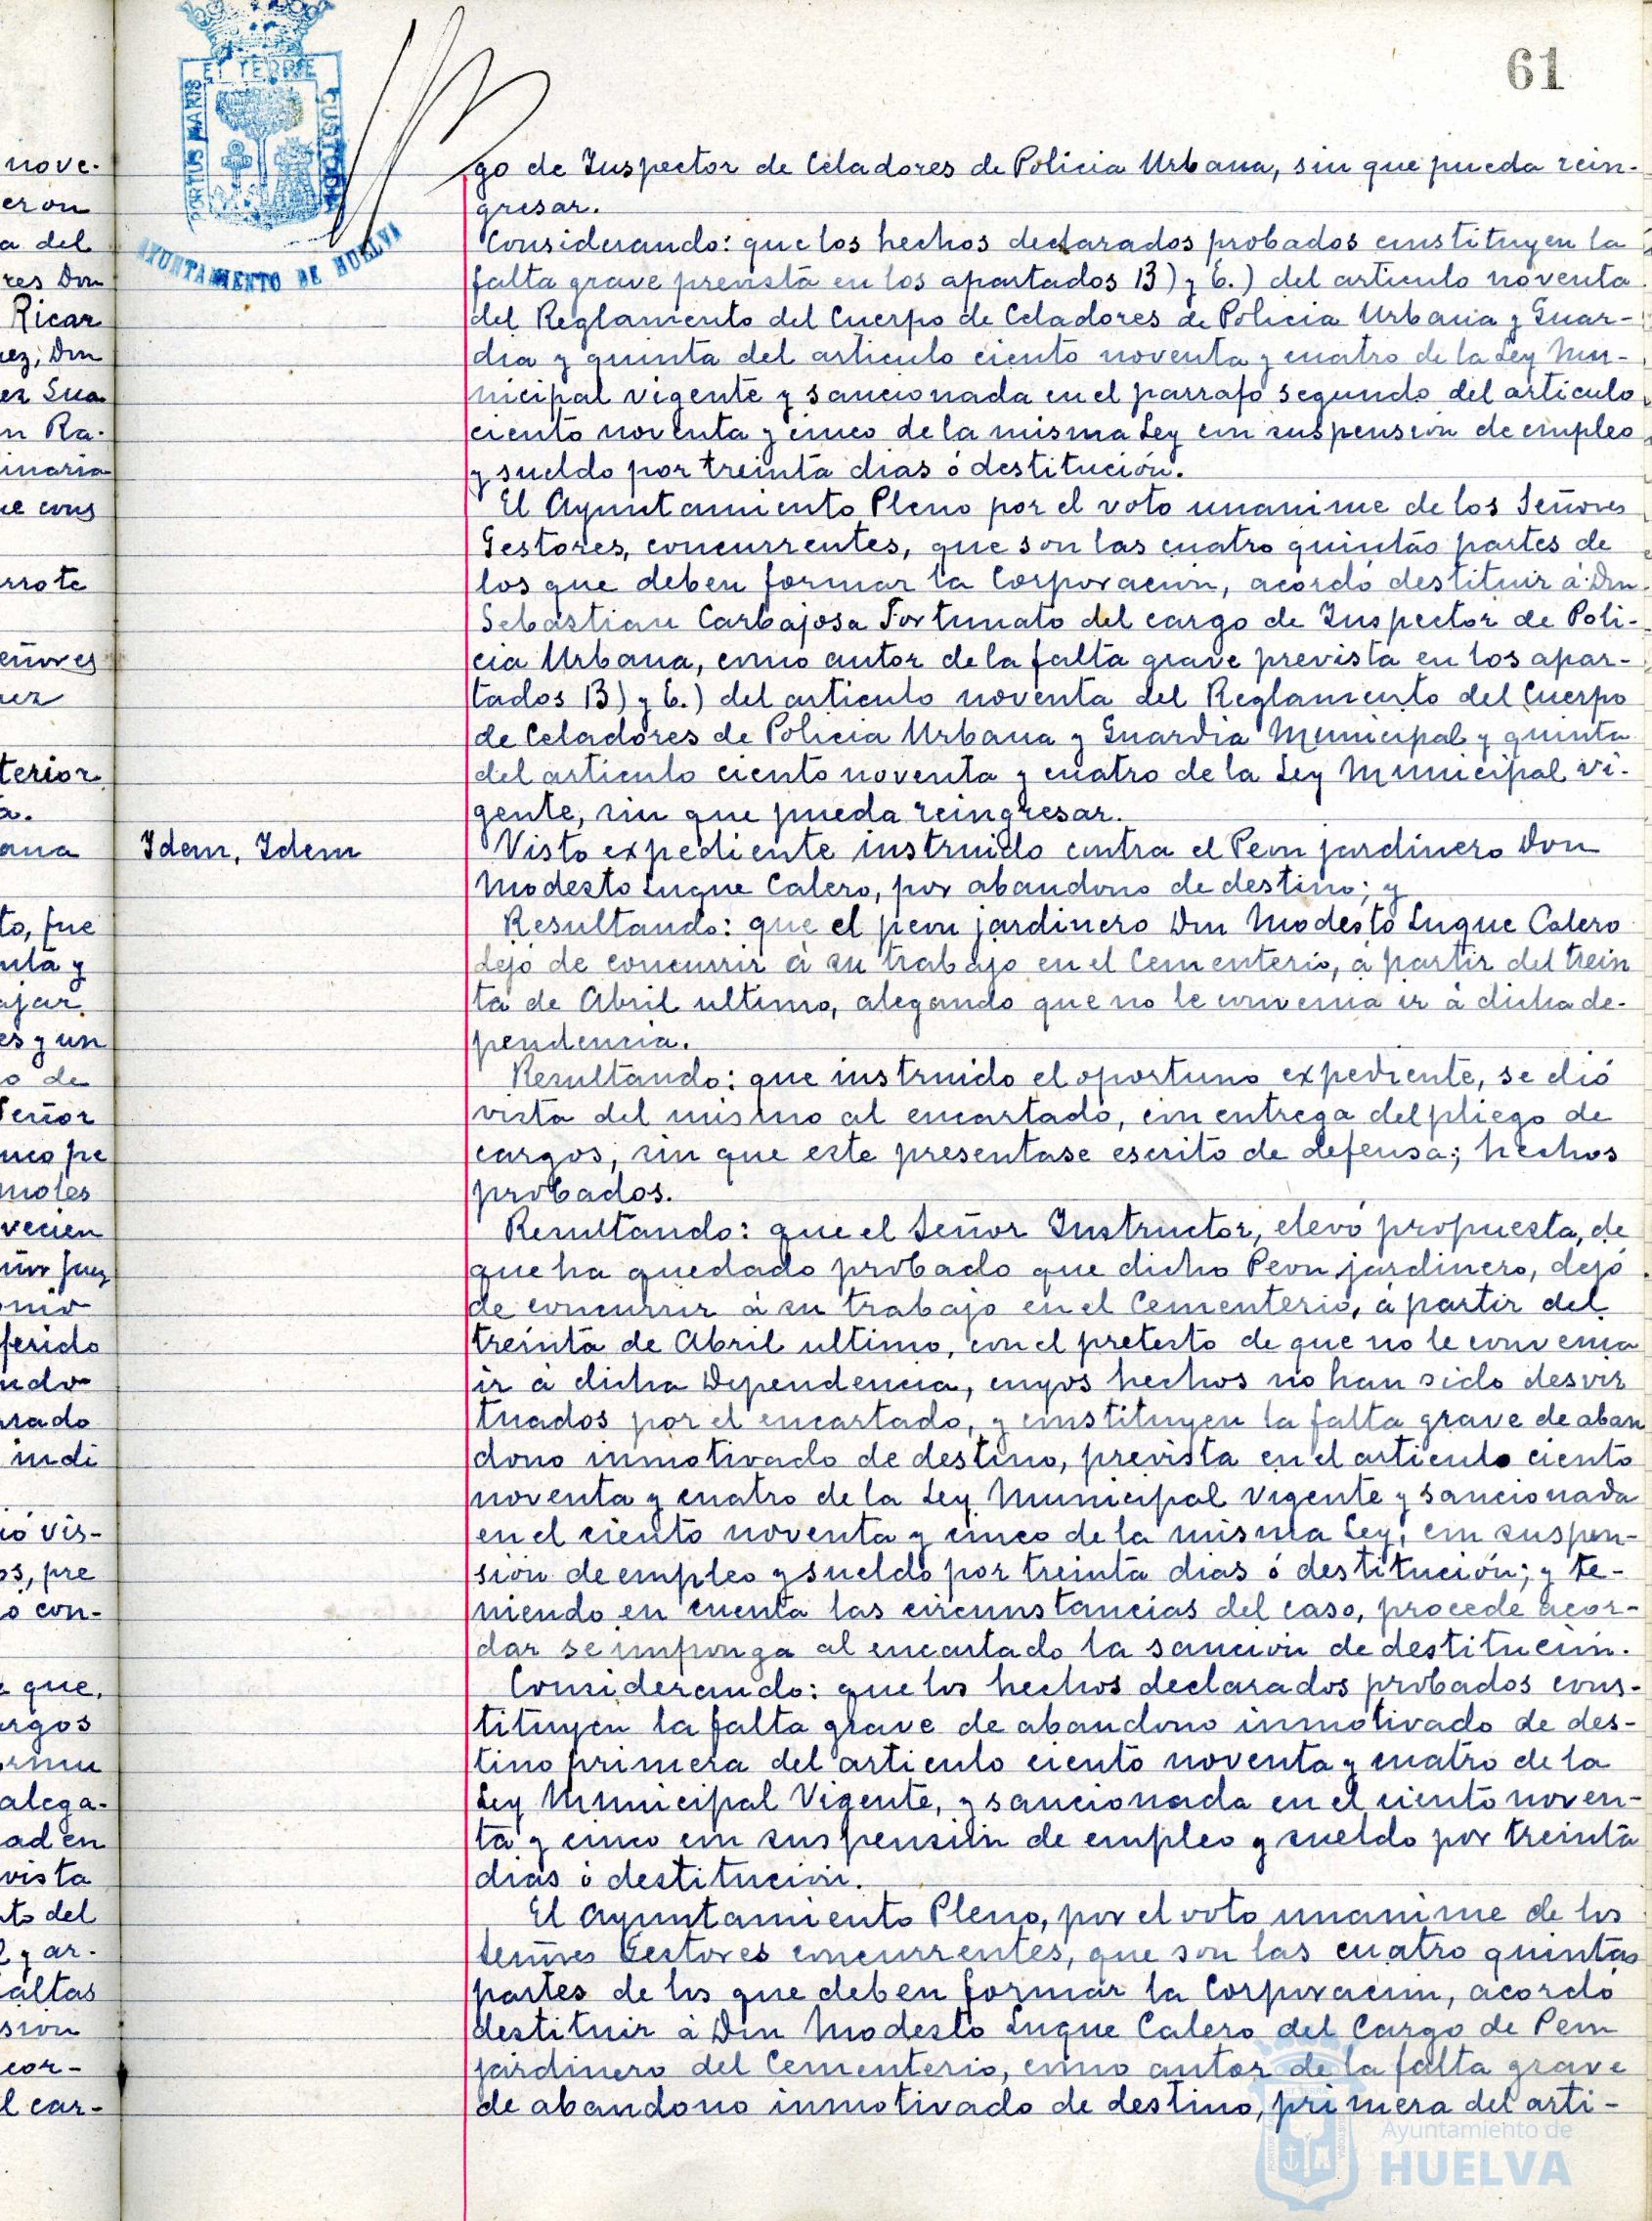 61
EL TERRE
PORTUS MARIS
CUSTODIA
AYUNTAMIENTO DE HUELVA
nove-
eron
a del
res Don
Ricar
ez, Don
ez Sua
n Ra-
inaria
ue cons
rrote
eñores
uez
terior
a.
ana
to, fue
nta y
ajar
es y un
o de
Señor
nco pe
moles
vecien
ñor Juez
onio
ferido
ndo
rado
indi
ió vis-
os, pre
o con-
e que,
argos
ormu
alega-
ad en
vista
to del
y ar-
faltas
sion
cor-
l car-
go de Inspector de Celadores de Policia Urbana, sin que pueda rein-
gresar.
Considerando: que los hechos declarados probados constituyen la
falta grave prevista en los apartados B) y C.) del articulo noventa
del Reglamento del Cuerpo de Celadores de Policia Urbana y Guar-
dia y quinta del articulo ciento noventa y cuatro de la Ley Mu-
nicipal vigente y sancionada en el parrafo segundo del articulo
ciento noventa y cinco de la misma Ley con suspension de empleo
y sueldo por treinta dias ó destitución.
El Ayuntamiento Pleno por el voto unanime de los Señores
Gestores, concurrentes, que son las cuatro quintas partes de
los que deben formar la Corporacion, acordó destituir á Don
Sebastian Carbajosa Fortunato del cargo de Inspector de Poli-
cia Urbana, como autor de la falta grave prevista en los apar-
tados B) y C.) del articulo noventa del Reglamento del Cuerpo
de Celadores de Policia Urbana y Guardia Municipal y quinta
del articulo ciento noventa y cuatro de la Ley Municipal vi-
gente, sin que pueda reingresar.
Idem, Idem
Visto expediente instruido contra el Peon jardinero Don
Modesto Luque Calero, por abandono de destino; y
Resultando: que el peon jardinero Don Modesto Luque Calero
dejó de concurrir á su trabajo en el Cementerio, á partir del trein
ta de Abril ultimo, alegando que no le convenia ir á dicha de-
pendencia.
Resultando: que instruido el oportuno expediente, se dió
vista del mismo al encartado, con entrega del pliego de
cargos, sin que este presentase escrito de defensa; hechos
probados.
Resultando: que el Señor Instructor, elevó propuesta, de
que ha quedado probado que dicho Peon jardinero, dejó
de concurrir á su trabajo en el Cementerio, á partir del
treinta de Abril ultimo, con el pretexto de que no le convenia
ir á dicha Dependencia, cuyos hechos no han sido desvir
tuados por el encartado, y constituyen la falta grave de aban
dono inmotivado de destino, prevista en el articulo ciento
noventa y cuatro de la Ley Municipal vigente y sancionada
en el ciento noventa y cinco de la misma Ley, con suspen-
sión de empleo y sueldo por treinta dias ó destitución; y te-
niendo en cuenta las circunstancias del caso, procede acor-
dar se imponga al encartado la sanción de destitución.
Considerando: que los hechos declarados probados cons-
tituyen la falta grave de abandono inmotivado de des-
tino primera del articulo ciento noventa y cuatro de la
Ley Municipal Vigente, y sancionada en el ciento noven-
ta y cinco con suspensión de empleo y sueldo por treinta
dias ó destitución.
El Ayuntamiento Pleno, por el voto unanime de los
Señores Gestores concurrentes, que son las cuatro quintas
partes de los que deben formar la Corporacion, acordó
destituir á Don Modesto Luque Calero del Cargo de Peon
jardinero del Cementerio, como autor de la falta grave
de abandono inmotivado de destino, primera del arti-
Ayuntamiento de
HUELVA